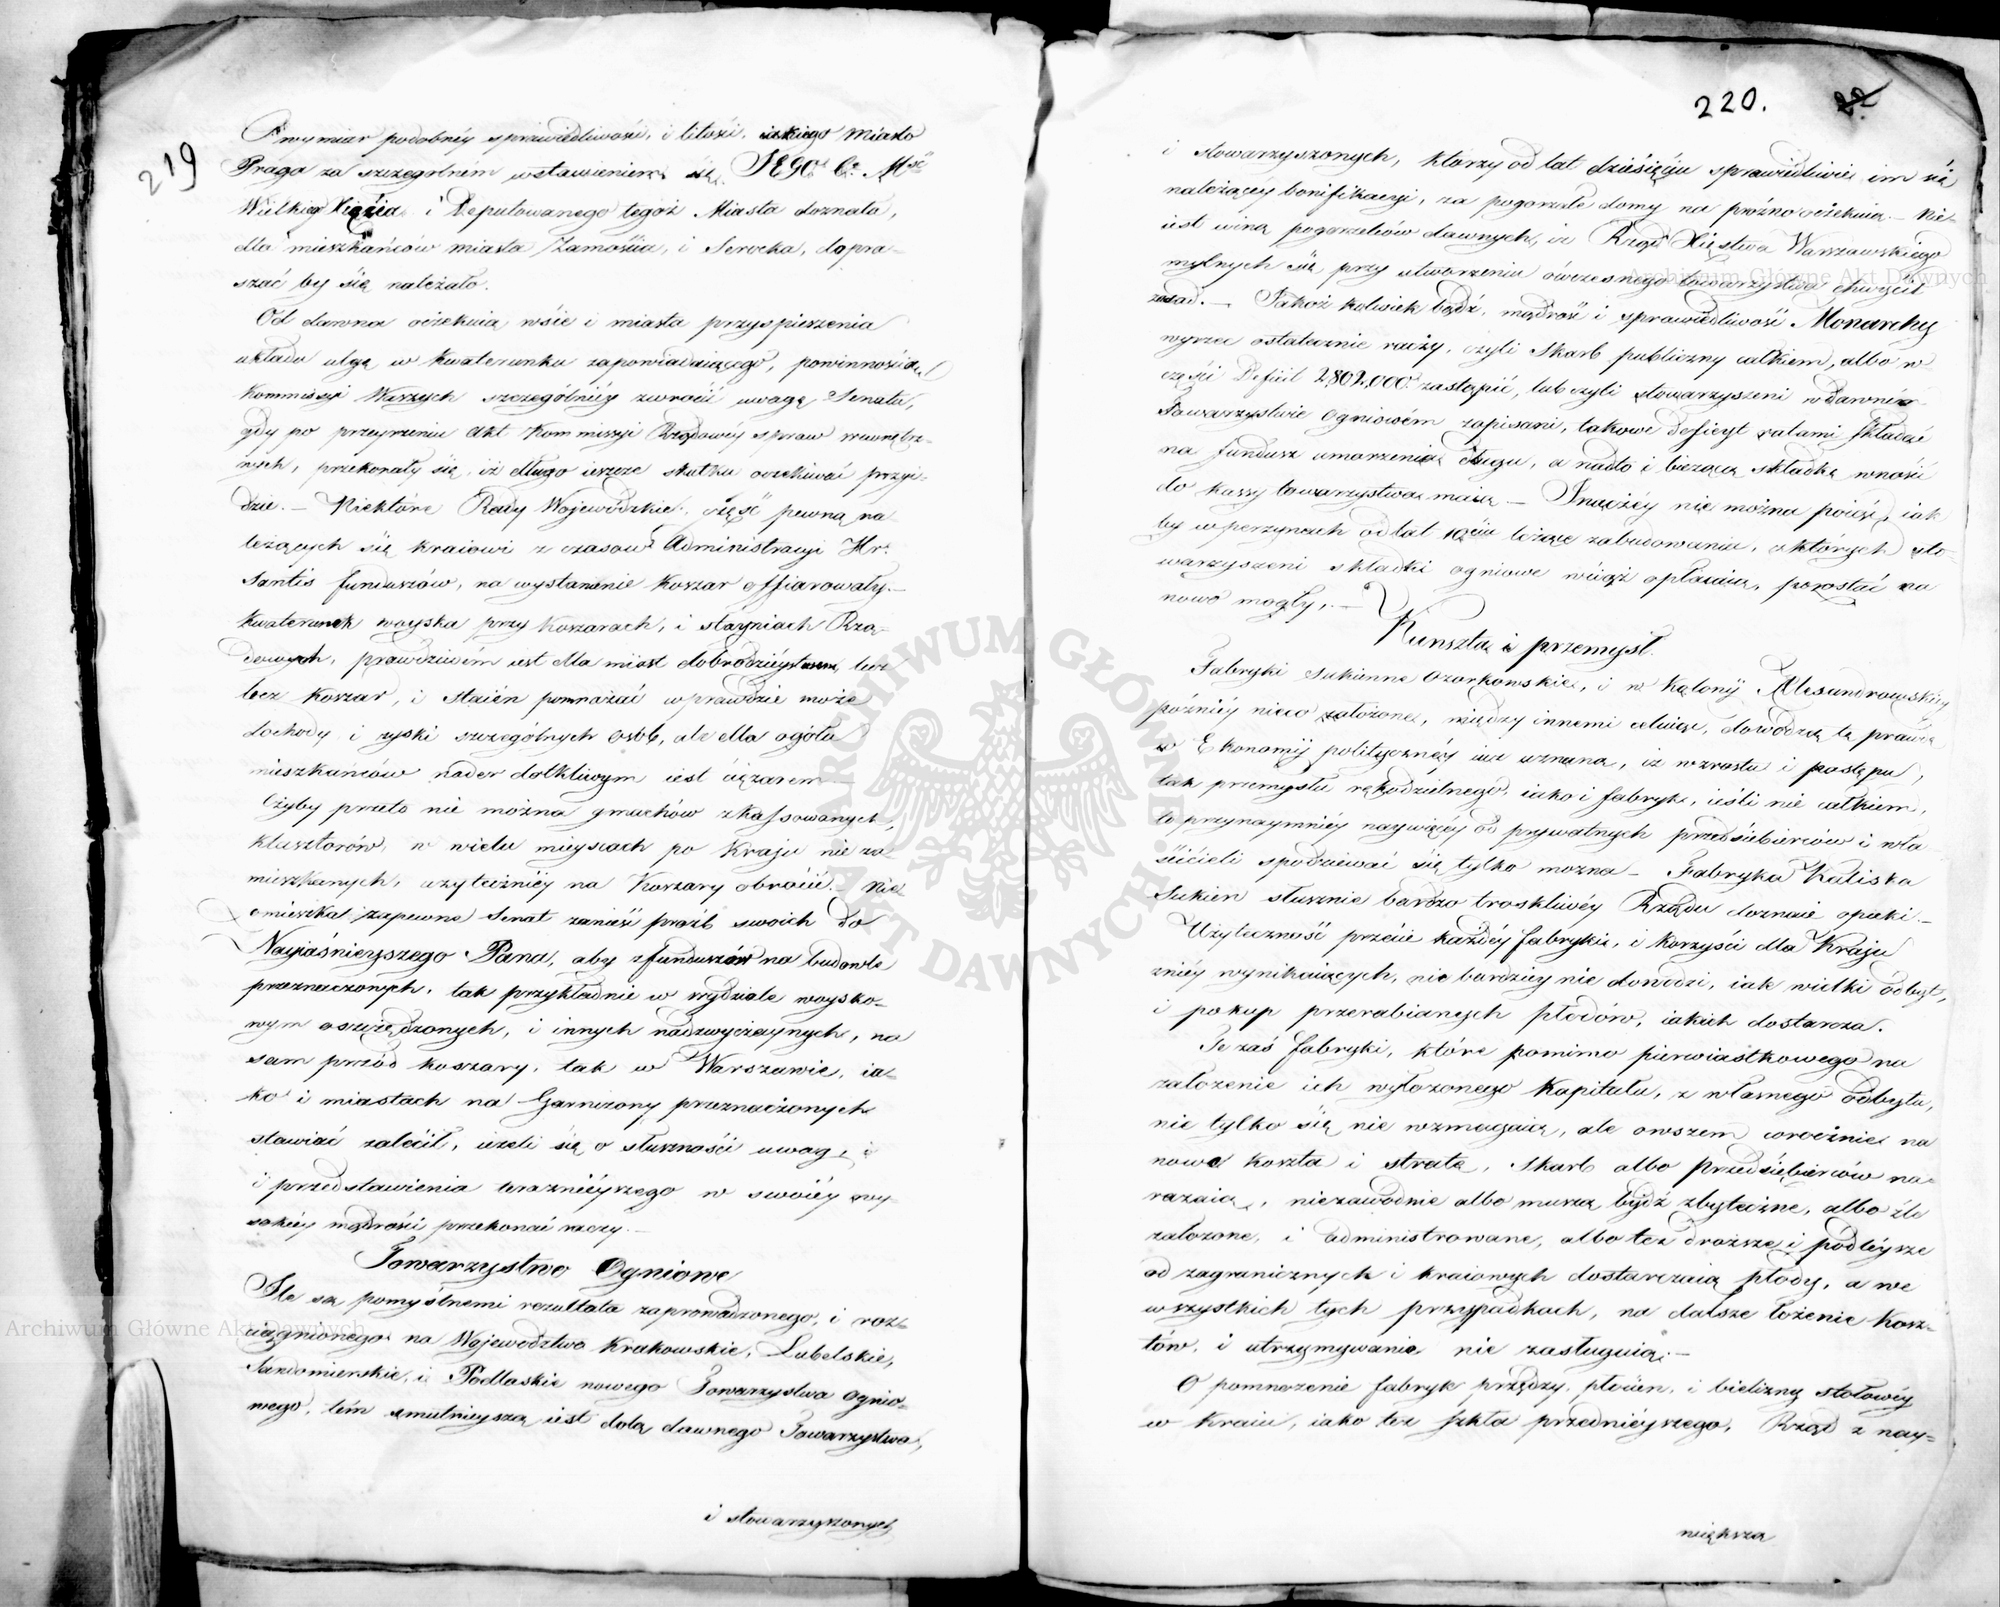 219
O wymiar podobnéy sprawiedliwości, i litości, iakiego Miasto
Praga za szczególnem wstawieniem się JEGO C. Mści
Wielkiego Xięcia i Deputowanego tegoż Miasta doznało,
dla mieszkańców miasta Zamościa, i Serocka, dopra-
szać by się należało.
Od dawna oczekuią wsie i miasta przyspieszenia
układu ulgę w kwaterunku zapowiadaiącego, powinnością
Kommissyi Waszych szczególniéy zwrócić uwagę Senatu,
gdy po przeyrzeniu Akt Kommissyi Rządowéy spraw wewnętrz-
nych, przekonały się, iż długo ieszcze skutku oczekiwać przyi-
dzie. — Niektóre Rady Wojewódzkie, część pewną na
leżących się kraiowi z czasów Administracyi Hr.
Santis funduszów, na wystawienie koszar offiarowały. —
Kwaterunek woyska przy koszarach, i stayniach Rzą-
dowych, prawdziwém iest dla miast dobrodzieystwem, lecz
bez koszar, i staién pomnażać wprawdzie może
dochody i zyski szczególnych osób, ale dla ogółu
mieszkańców nader dotkliwym iest ciężarem —
Czyby przeto nie można gmachów skassowanych,
klasztorów, w wielu mieyscach po Kraju nie za-
mieszkanych, użyteczniéy na Koszary obrócić. — Nie
omieszka zapewne Senat zanieść proźb swoich do
Nayjaśnieyszego Pana, aby z funduszów na budowle
przeznaczonych, tak przykładnie w wydziale woysko-
wym oszczędzonych, i innych nadzwyczaynych, na
sam przód koszary, tak w Warszawie, ia-
ko i miastach na Garnizony przeznaczonych
stawiać zalécił, ieżeli się o słuszności uwag, i
i przedstawienia uważnieyszego w swoiéy wy-
sokiéy mądrości przekonać raczy. —
Towarzystwo Ogniowe
Ile są pomyślnemi rezultata zaprowadzonego, i roz-
ciągnionego na Wojewodztwo Krakowskie, Lubelskie,
Sandomierskie, i Podlaskie nowego Towarzystwa ognio-
wego, tém smutnieyszą iest dola dawnego Towarzystwa,
i stowarzyszonych
220. 22
i stowarzyszonych, którzy od lat dziesięciu sprawiedliwie im się
należącey bonifikacyi, za pogorzałe domy na próżno oczekuią. — Nie-
iest winą pogorzelców dawnych, iż Rząd Xięstwa Warszawskiego
mylnych się przy utworzeniu ówczesnego towarzystwa chwycił
zasad. — Jakoż kolwiek bądź, mądrość i sprawiedliwość Monarchy
wyrzec ostatecznie raczy, czyli Skarb publiczny całkiem, albo w
części Deficit 2,802,000 zastąpić, lub czyli stowarzyszeni w dawnéw
Towarzystwie Ogniowém zapisani, takowe deficyt ratami składać
na fundusz umorzenia długu, a nadto i bieżącą składkę wnosić
do kassy towarzystwa maią — Inaczéy nie można poiąć, iak
by w perzynach od lat 10ciu leżące zabudowania, od których sto-
warzyszeni składki ogniowe wciąż opłacaią, pozostać na
nowo mogły. —
Kunszta i przemysł.
Fabryki sukienne Ozorkowskie, i w Kolonij Alexandrowskiéy
późniéy nieco założone, między innemi celuiąc, dowodzą tę prawdę
w Ekonomij polityczney iuż uznaną, iż wzrostu i postępu,
tak przemysłu rękodzielnego, iako i fabryk, ieśli nie całkiem,
to przynaymniéy naywięcéy od prywatnych przedsiebierców i wła
ścicieli spodziewać się tylko można — Fabryka Kaliska
Sukien słusznie bardzo troskliwéy Rządu doznaie opieki. —
Użyteczność przecie każdéy fabryki, i korzyści dla Kraju
zniéy wynikaiących, nic bardziey nie dowodzi, iak wielki odbyt,
i pokup przerabianych płodów, iakich dostarcza.
Te zaś fabryki, które pomimo pierwiastkowego na
założenie ich wyłożonego Kapitału, z własnego odbytu,
nie tylko się nie wzmagaią, ale owszem corocznie na
nowe koszta i stratę, Skarb albo przedsiębierców na-
rażaią, niezawodnie albo muszą bydź zbyteczne, albo źle
założone, i administrowane, albo też droższe i podléysze
od zagranicznych i kraiowych dostarczaią płody, a we
wszystkich tych przypadkach, na dalsze łożenie kosz-
tów, i utrzymywanie nie zasługuią. —
O pomnożenie fabryk przędzy, płócien, i bielizny stołowéy
w kraiu, iako też szkła przednieyszego, Rząd z nay-
większą
Archiwum Główne Akt Dawnych
Archiwum Główne Akt Dawnych
ARCHIWUM GŁÓWNE AKT DAWNYCH